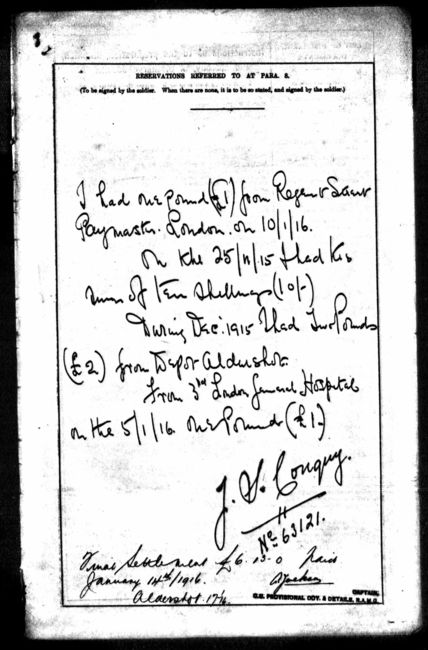 RESERVATIONS REFERRED TO AT PARA. 8.
(To be signed by the soldier. When there are none, it is to be so stated, and signed by the soldier.)
I had one pound (£1) from Regent Street
Paymaster. London. on 10/1/16.
On the 25/11/15 I had the
sum of Ten Shillings (10/-)
During Dec. 1915 I had Two Pounds
(£2) from Depot Aldershot.
From 3rd London General Hospital
on the 5/1/16. One Pound (£1.)
J. S. Conquy.
No 63121.
Final Settlement £6. 13. 0 Paid
January 14th/1916.
Aldershot.
CAPTAIN,
O.C. PROVISIONAL COY. & DETAILS, R.A.M.C.